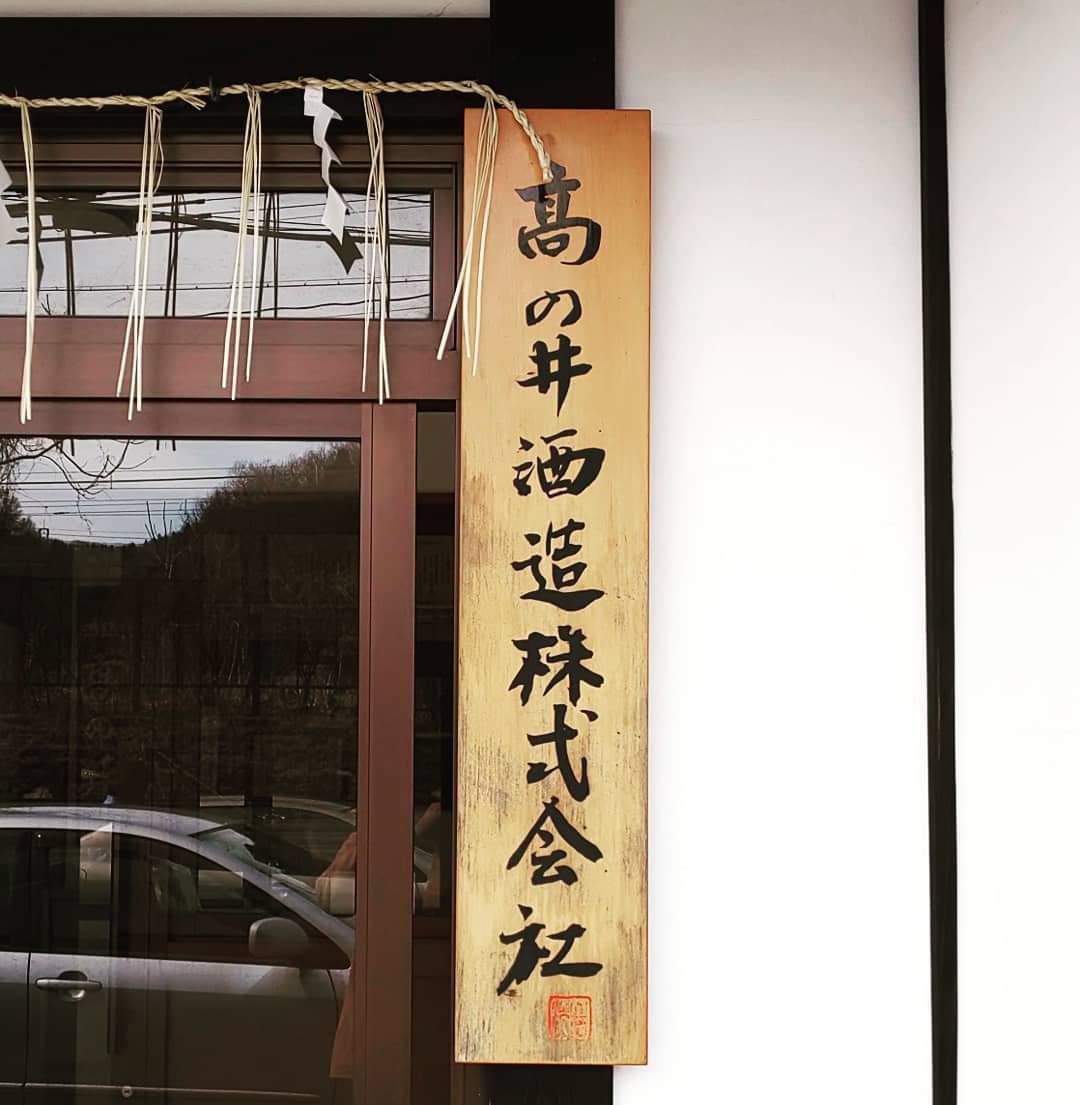 髙の井酒造株式会社